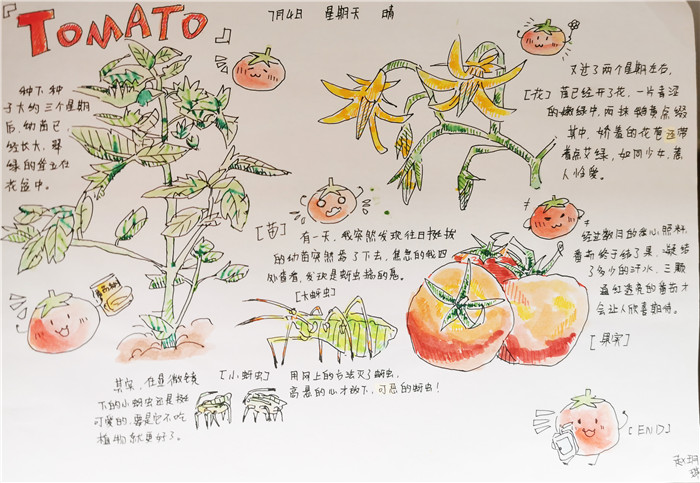 TOMATO
7月4日 星期天 晴
种下种
子大约三个星期
后,幼苗已
经长大,翠
绿的耸立在
花盆中。
又过了两个星期左右,
[花] 苗已经开了花,一片青涩
的嫩绿中,两抹鹅黄点缀
其中,娇羞的花蕾还带
着点艾绿,如同少女,惹
人怜爱。
[苗]
有一天,我突然发现往日挺拔
的幼苗突然蔫了下去,焦急的我四
处查看,发现是蚜虫搞的鬼。
[大蚜虫]
经过数月的精心照料,
番茄终于结了果,凝结
了多少的汗水,三颗
温红透亮的番茄才
会让人欣喜期待。
[果实]
其实,在显微镜
下的小蚜虫还是挺
可爱的,要是它不吃
植物就更好了。
[小蚜虫]
用网上的方法灭了蚜虫,
高悬的心才放下,可恶的蚜虫!
[END]
赵玥
琪